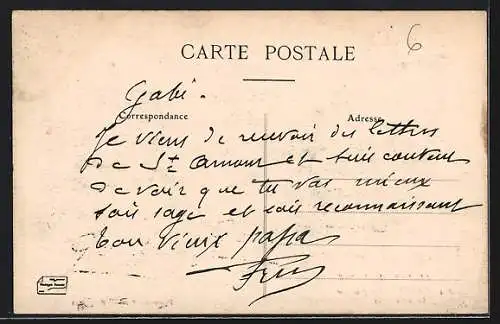 6
CARTE POSTALE
Gabi.
Correspondance
Adresse
Je viens de recevoir des lettres
de St Amour et suis content
de voir que tu vas mieux
sois sage et sois reconnaissant
ton vieux papa